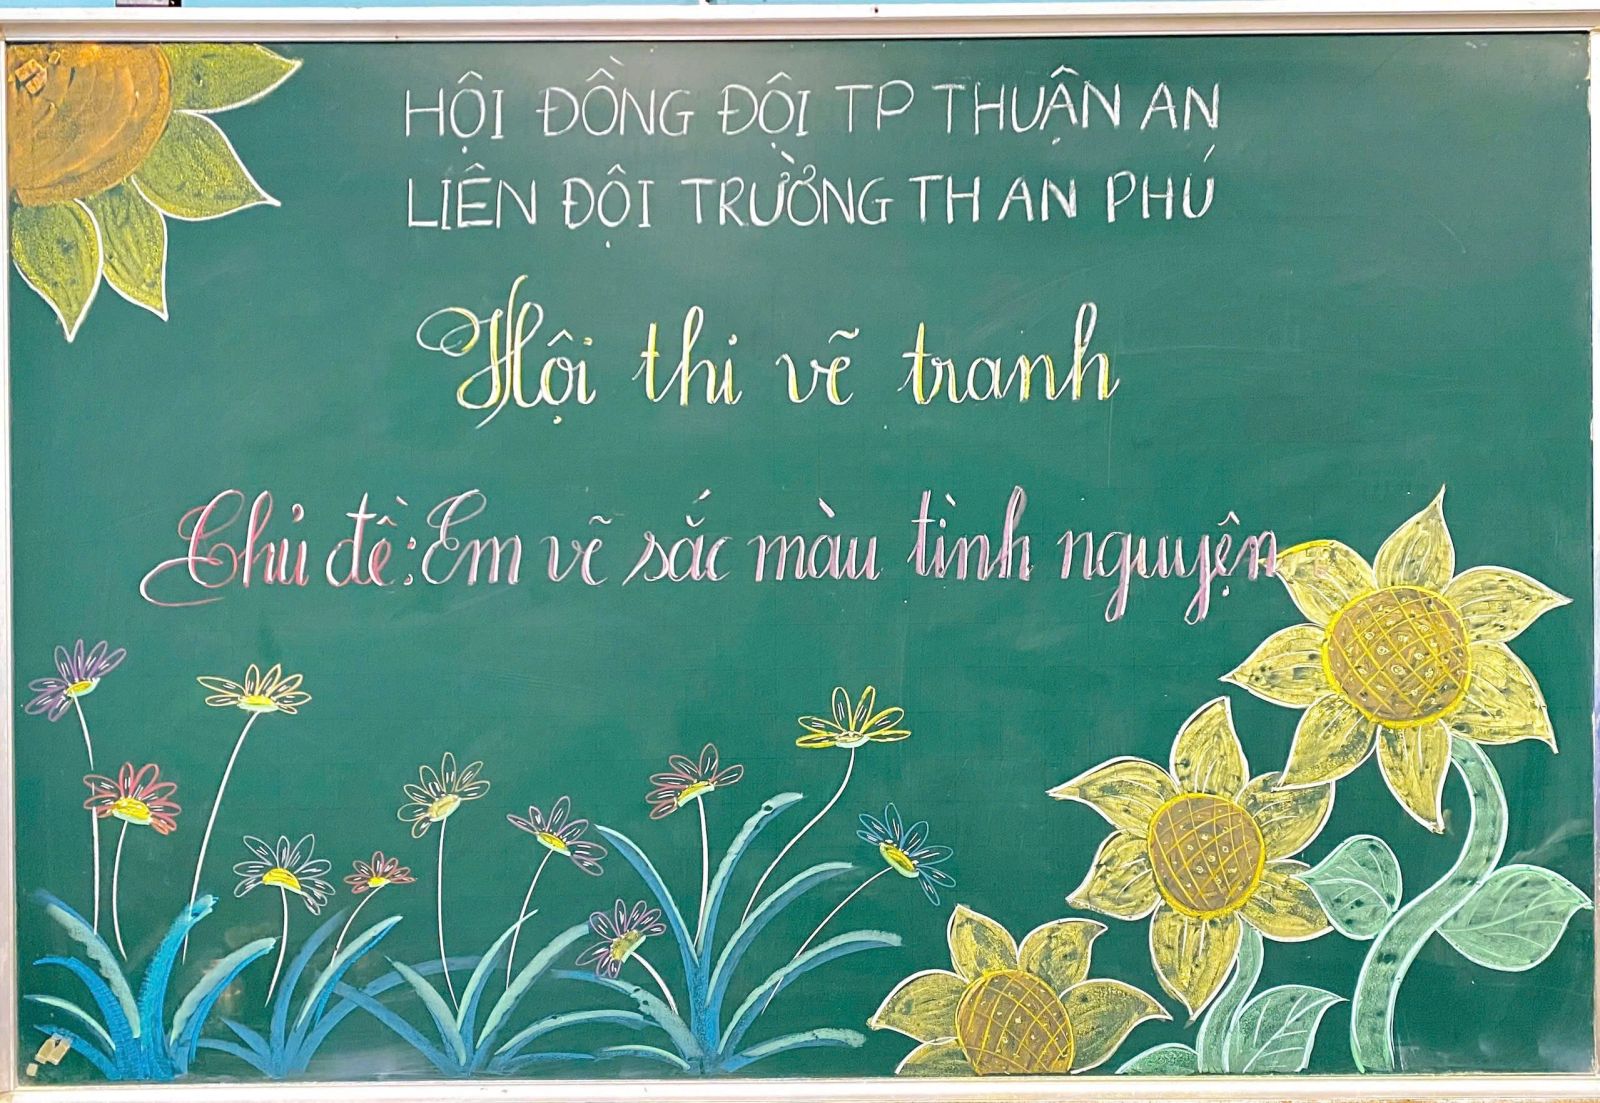 HỘI ĐỒNG ĐỘI TP THUẬN AN
LIÊN ĐỘI TRƯỜNG TH AN PHÚ
Hội thi vẽ tranh
Chủ đề: Em vẽ sắc màu tình nguyện